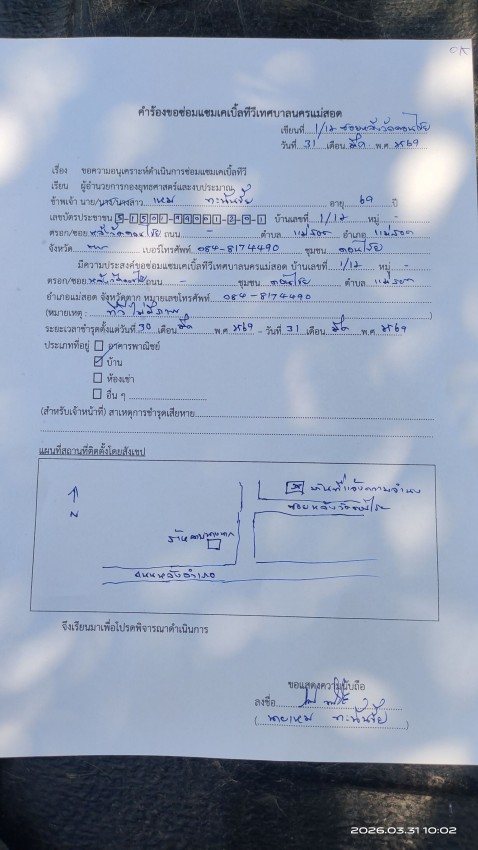 OK
คำร้องขอซ่อมแซมเคเบิ้ลทีวีเทศบาลนครแม่สอด
เขียนที่ 1/12 ซอยหลังวัดดอนไชย
วันที่ 31 เดือน มีค พ.ศ. ๒๕69
เรื่อง ขอความอนุเคราะห์ดำเนินการซ่อมแซมเคเบิ้ลทีวี
เรียน ผู้อำนวยการกองยุทธศาสตร์และงบประมาณ
ข้าพเจ้า นาย/นาง/นางสาว เหม อายุ 69 ปี
เลขบัตรประชาชน บ้านเลขที่ 1/12 หมู่ -
ตรอก/ซอย หลังวัดดอนไชย ถนน - ตำบล แม่สอด อำเภอ แม่สอด
จังหวัด ตาก เบอร์โทรศัพท์ 084-8174490 ชุมชน ดอนไชย
มีความประสงค์ขอซ่อมแซมเคเบิ้ลทีวีเทศบาลนครแม่สอด บ้านเลขที่ 1/12 หมู่ -
ตรอก/ซอย หลังวัดดอนไชย ถนน - ชุมชน ดอนไชย ตำบล แม่สอด
อำเภอแม่สอด จังหวัดตาก หมายเลขโทรศัพท์ 084-8174490
(หมายเหตุ : ทีวีไม่มีภาพ )
ระยะเวลาชำรุดตั้งแต่วันที่ 30 เดือน มีค พ.ศ. ๒๕69 - วันที่ 31 เดือน มีค พ.ศ. ๒๕69
ประเภทที่อยู่ อาคารพาณิชย์
บ้าน
ห้องเช่า
อื่น ๆ
(สำหรับเจ้าหน้าที่) สาเหตุการชำรุดเสียหาย
แผนที่สถานที่ติดตั้งโดยสังเขป
N
ซอยหลังวัดดอนไชย
ถนนหลังอำเภอ
จึงเรียนมาเพื่อโปรดพิจารณาดำเนินการ
ขอแสดงความนับถือ
ลงชื่อ
( นายเหม )
2026.03.31 10:02